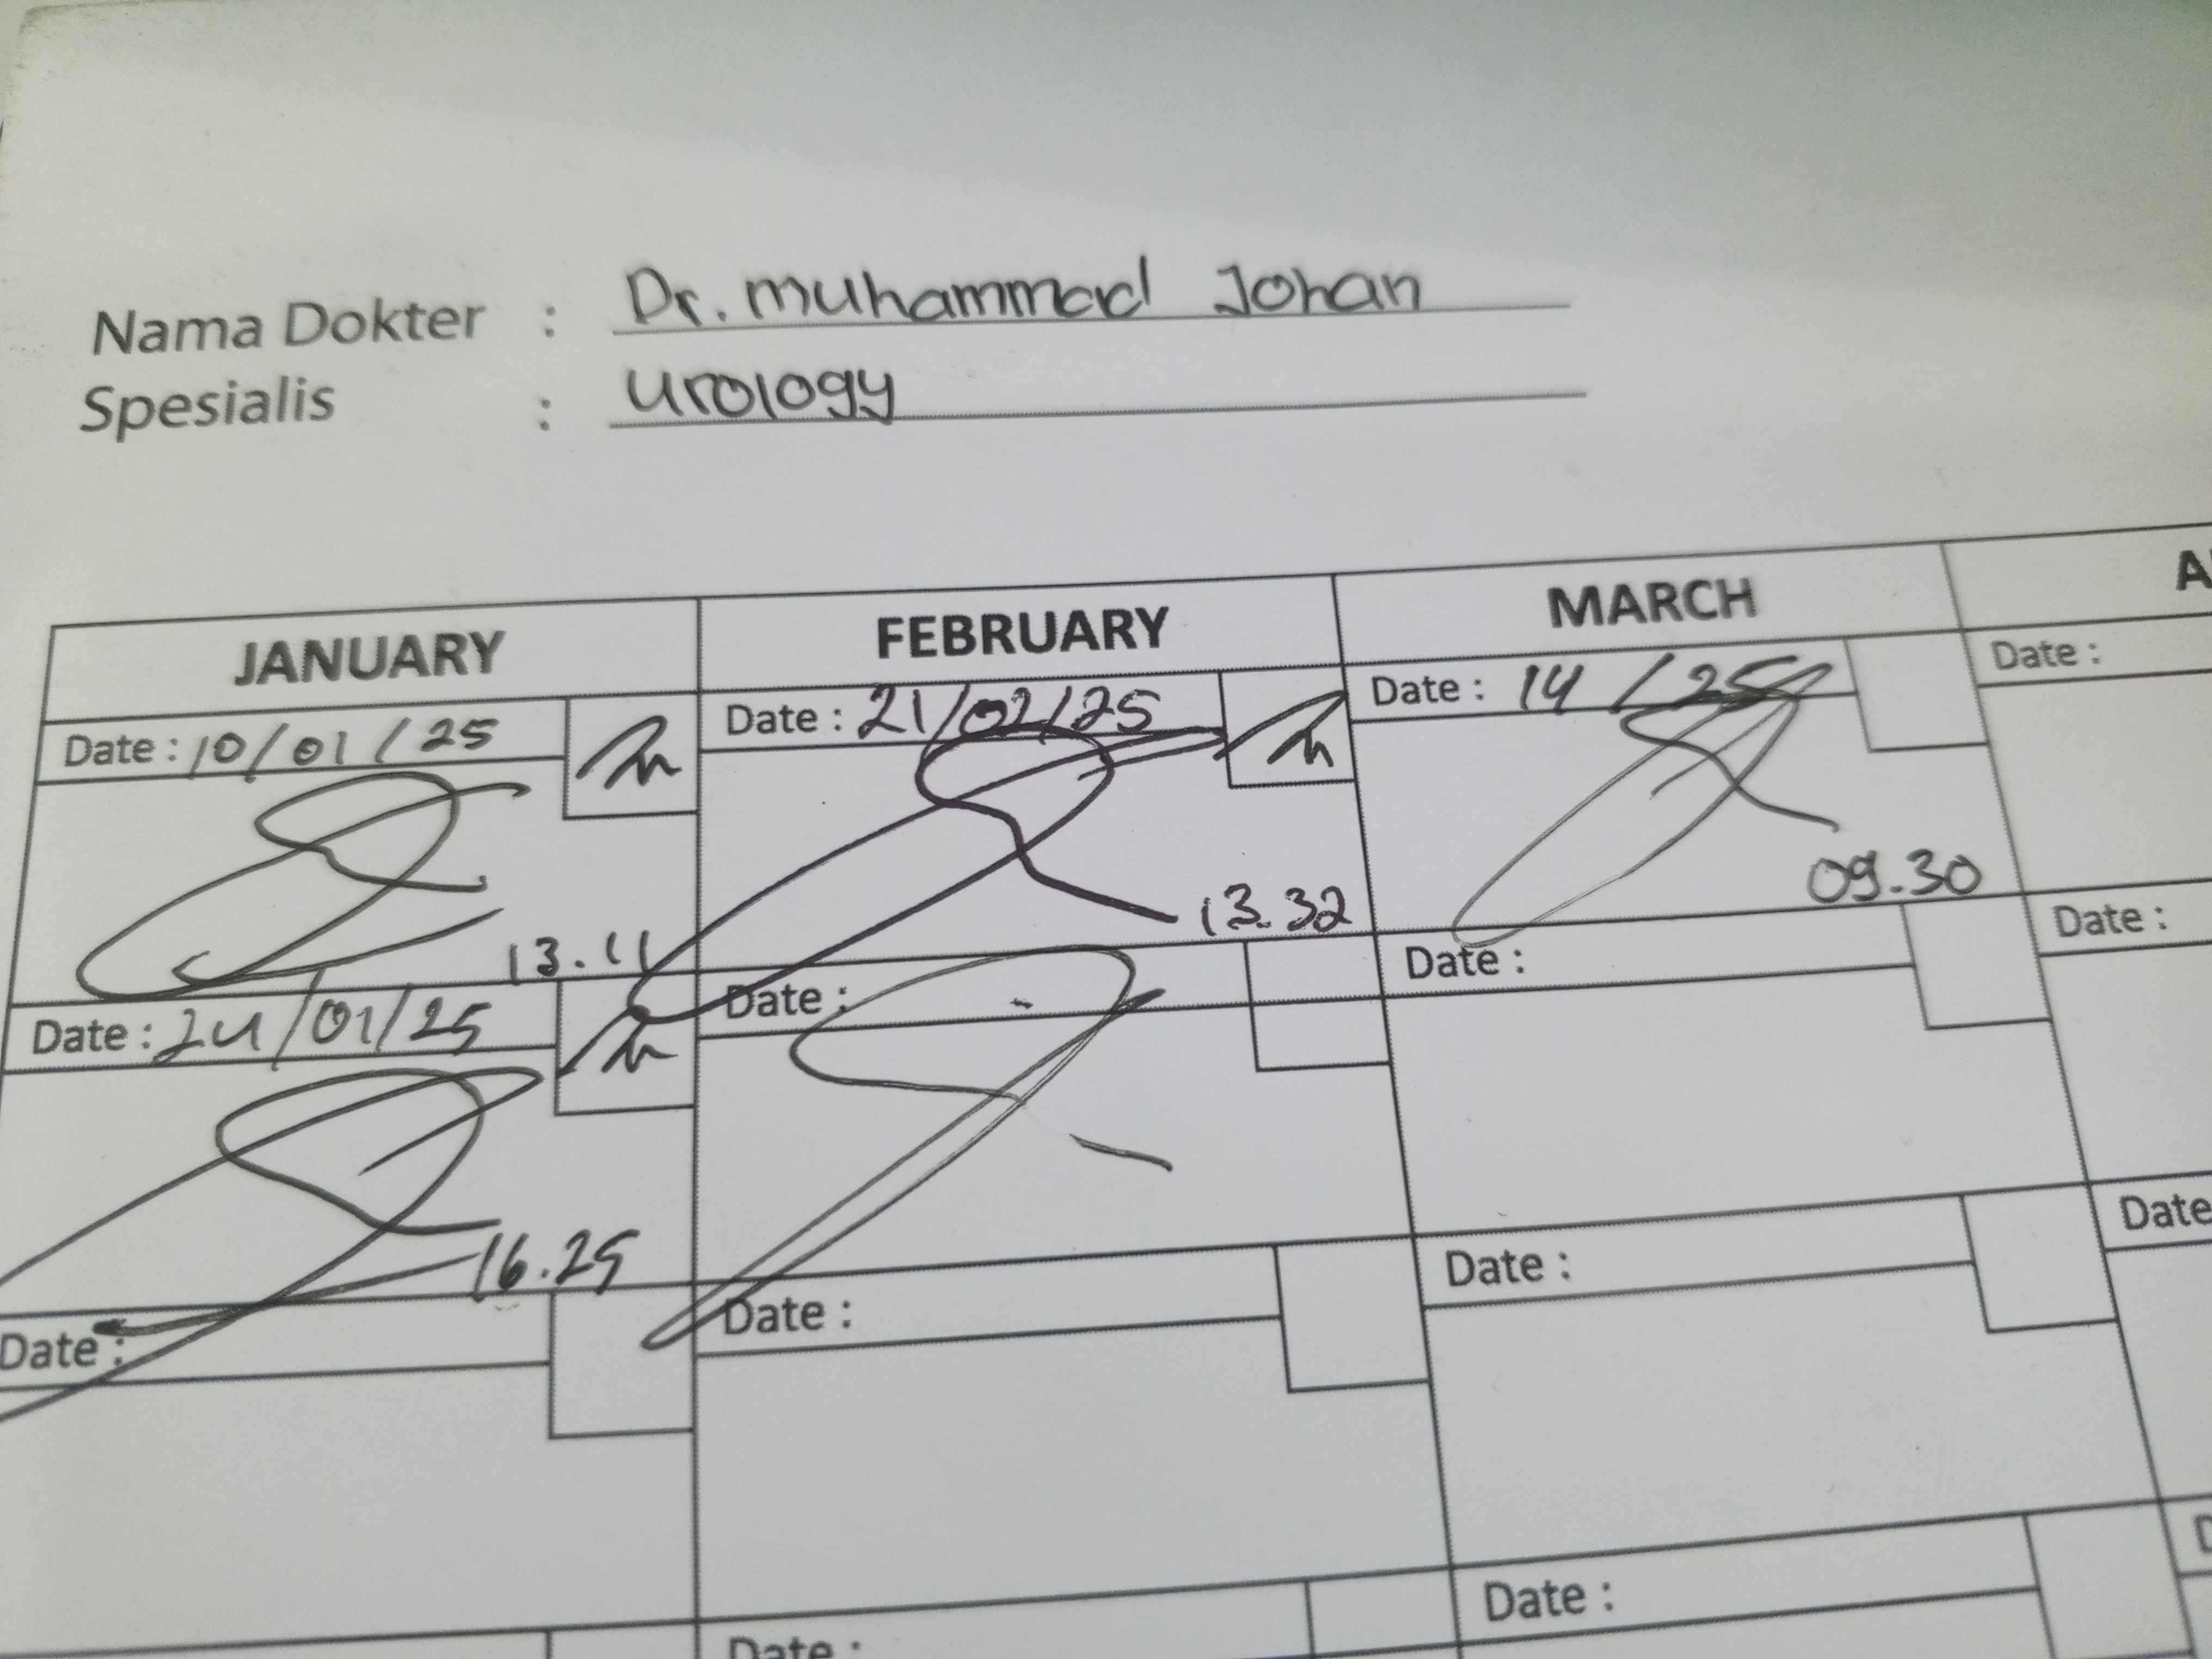 Nama Dokter : Dr. Muhammad Johan
Spesialis : Urology
JANUARY FEBRUARY MARCH
Date : 10/01/25 Date : 21/02/25 Date : 14 /25 Date :
13.11 13.32 09.30
Date : 24/01/25 Date : Date : Date :
16.25
Date : Date : Date : Date
Date : Date :